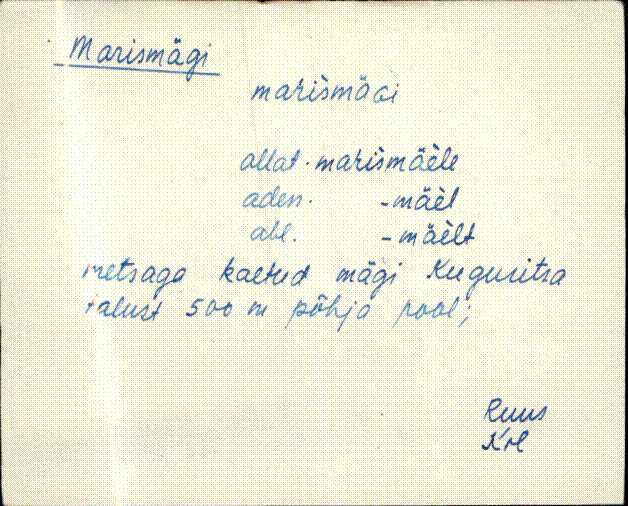 Marismägi
marismäGi
allat. marìsmäèle
aden. -mäèl
abl. -mäèlt
metsaga kaetud mägi Kuguritsa
talust 500 m põhja pool;
Ruus